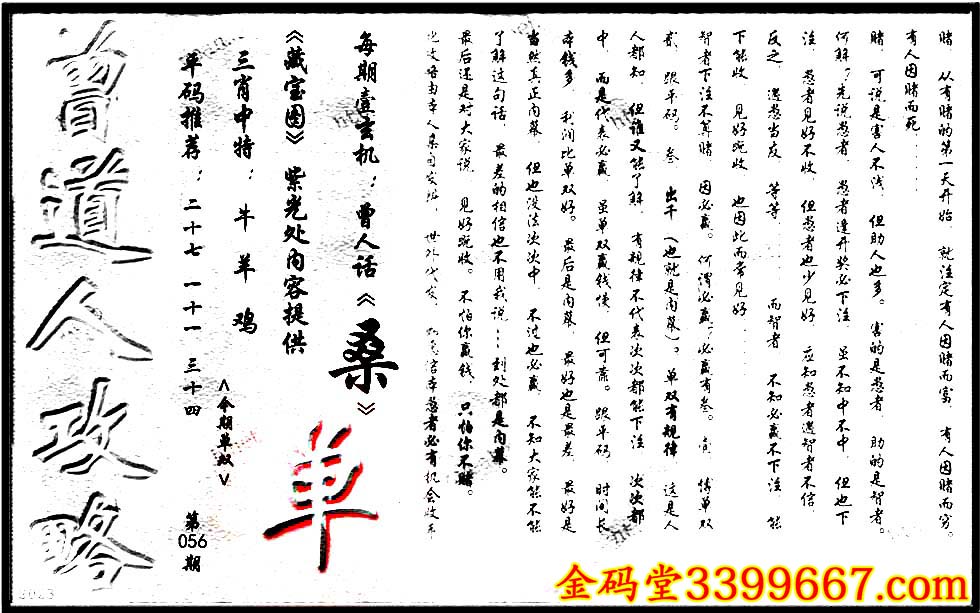 赌 从有赌的第一天开始 就注定有人因赌而富 有人因赌而穷。
有人因赌而死
赌，可说是害人不浅，但助人也多。害的是愚者，助的是智者。
何解？先说愚者，愚者逢开奖必下注 虽不知中不中 但也下
注 愚者见好不收 但愚者也少见好 应知愚者遇智者不信
反之 遇愚当度 等等 而智者 不知必赢不下注 能
下能收 见好就收 也因此而常见好
智者下注不算赌 因必赢。何谓必赢，必赢有叁。壹 情单双
贰 跟平码。叁 出千（也就是内幕）。单双有规律 这是人
人都知 但谁又能了解 有规律不代表次次都能下注 次次都
中 而是代表必赢 虽单双赢钱慢 但可靠。跟平码 时间长
本钱多 利润比单双好。最后是内幕 最好也是最差 最好是
当然真正内幕 但也没法次次中 不过也必赢 不知大家能不能
了解这句话 最差的相信也不用我说…到处都是内幕。
最后还是对大家说 见好就收。不怕你赢钱，只怕你不赌。
每期壹玄机：曾人话《桑》
《藏宝图》紫光处内容提供
三肖中特：牛 羊 鸡
单码推荐：二十七 一十一 三十四
<今期单双>
单
第
056
期
曾道人攻略
2023
金码堂3399667.com